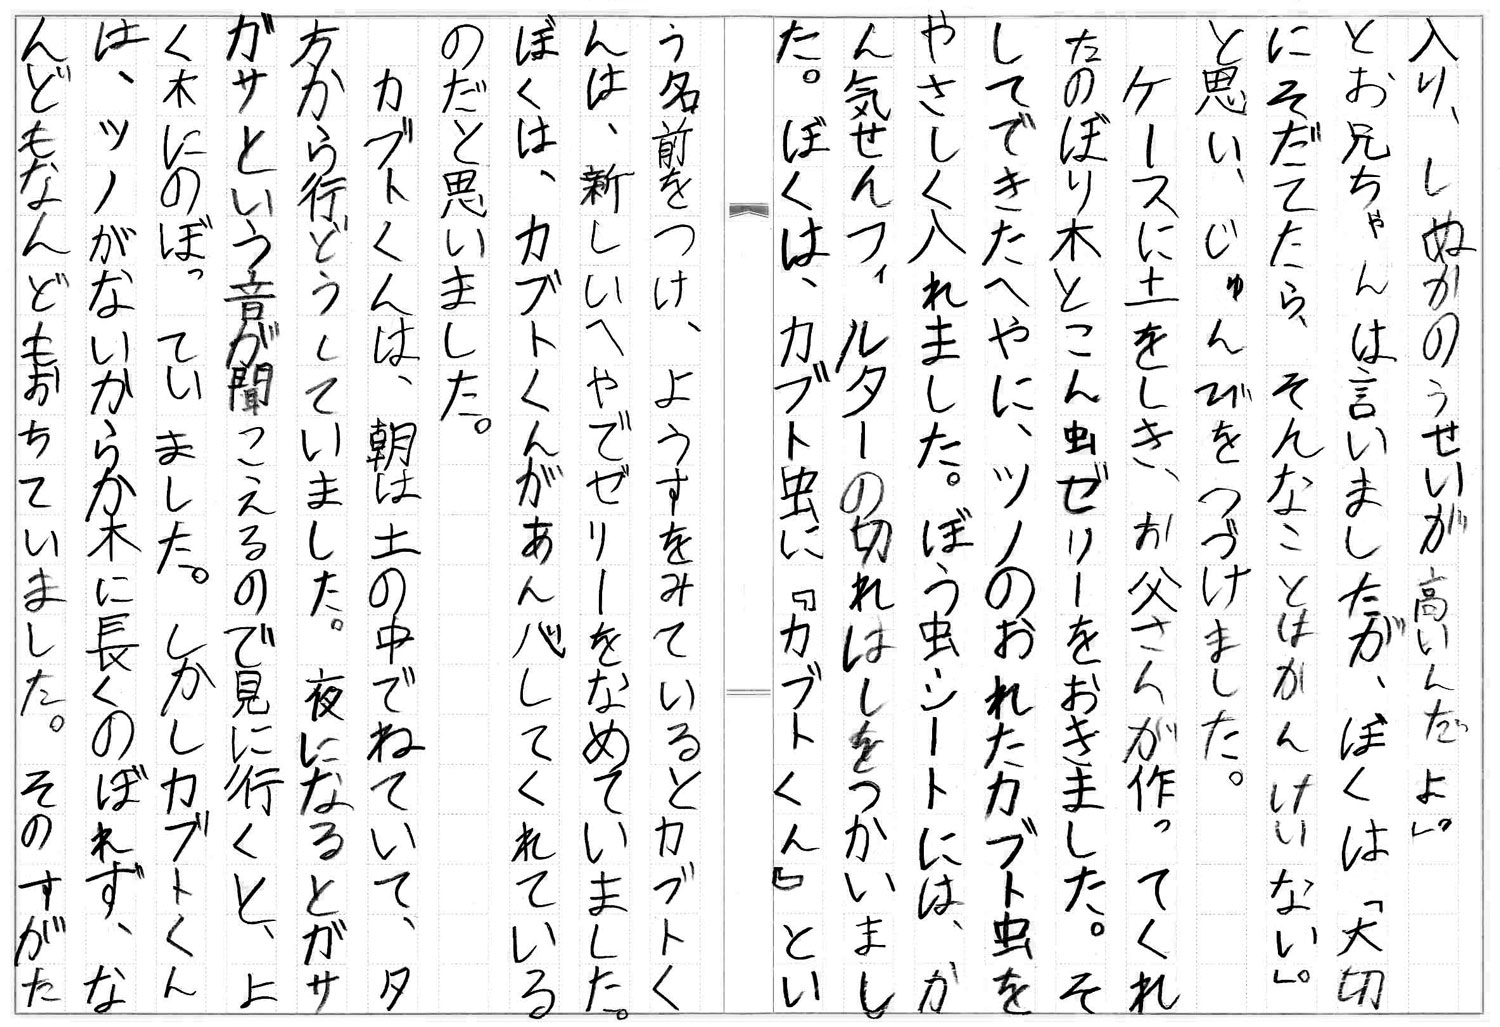 入り、しぬかのうせいが高いんだよ」。
とお兄ちゃんは言いましたが、ぼくは「大切
にそだてたら、そんなことはかんけいない」。
と思い、じゅんびをつづけました。
ケースに土をしき、お父さんが作ってくれ
たのぼり木とこん虫ゼリーをおきました。そ
してできたへやに、ツノのおれたカブト虫を
やさしく入れました。ぼう虫シートには、か
ん気せんフィルターの切れはしをつかいまし
た。ぼくは、カブト虫に『カブトくん』とい
う名前をつけ、ようすをみているとカブトく
んは、新しいへやでゼリーをなめていました。
ぼくは、カブトくんがあん心してくれている
のだと思いました。
カブトくんは、朝は土の中でねていて、夕
方から行どうしていました。夜になるとガサ
ガサという音が聞こえるので見に行くと、よ
く木にのぼっていました。しかしカブトくん
は、ツノがないからか木に長くのぼれず、な
んどもなんどもおちていました。そのすがた